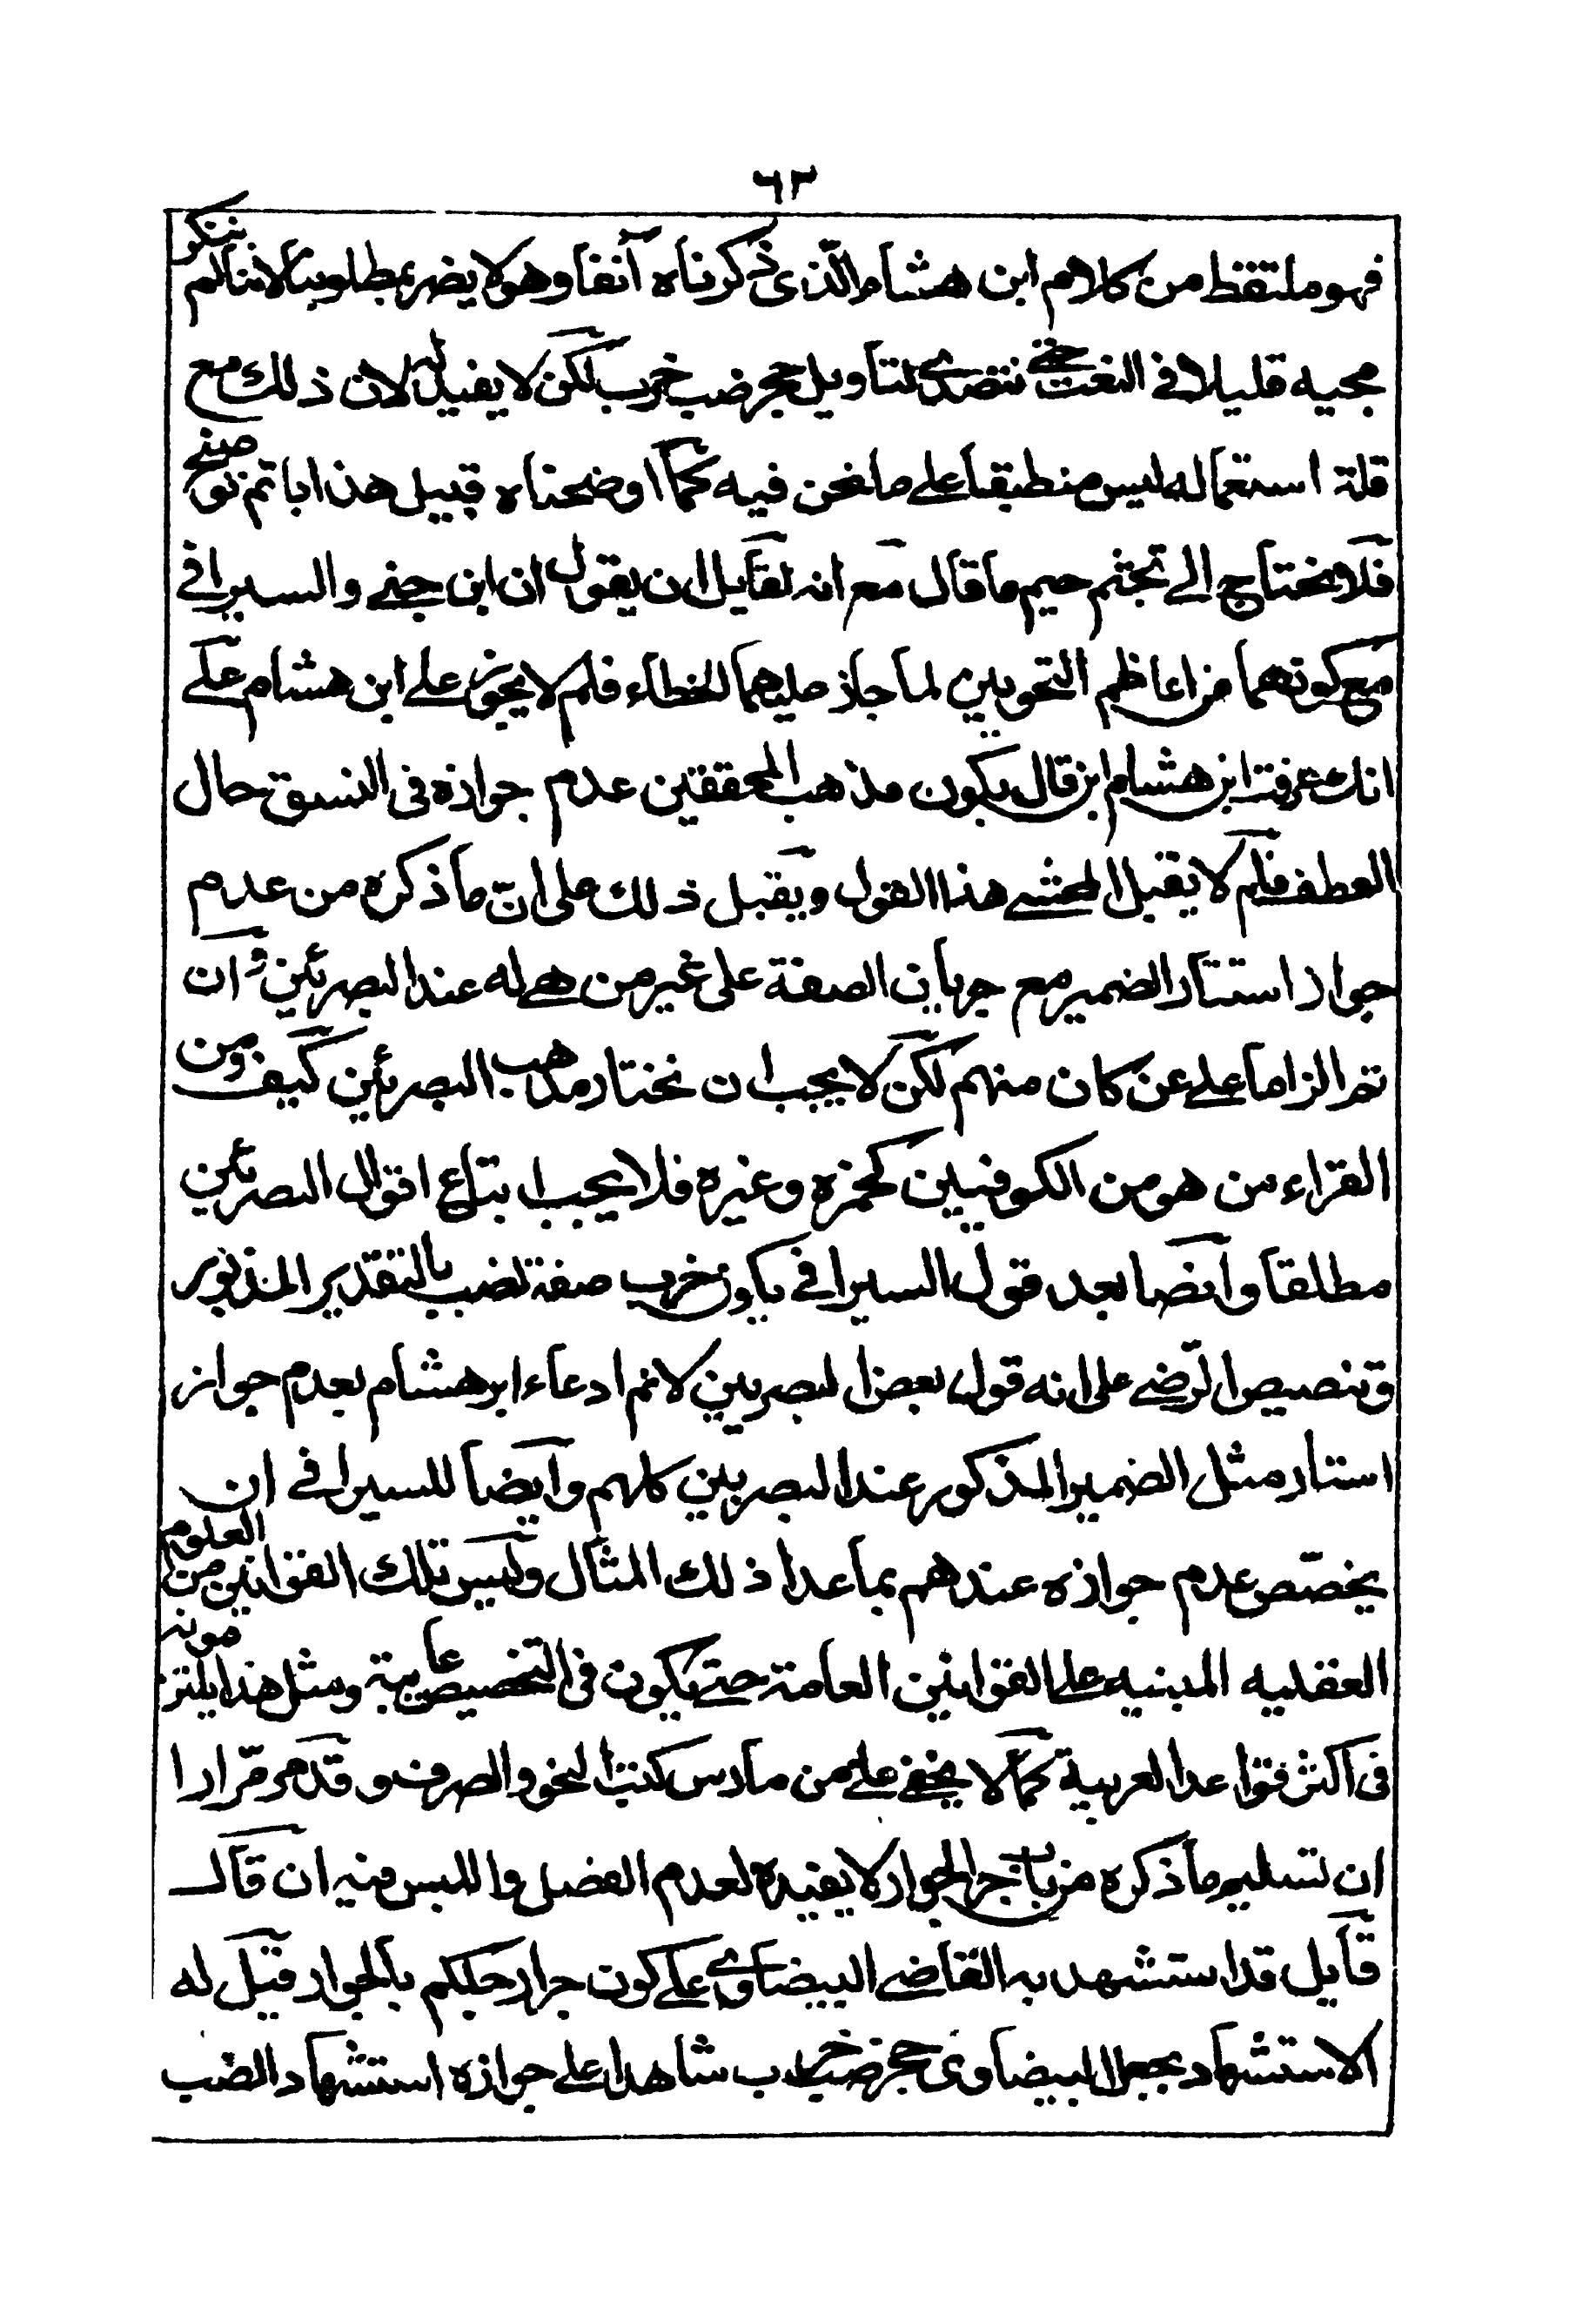 ٦٣
فهو ملتقط من كلام ابن هشام الذى ذكرناه آنفا وهو لا يضر بمطلوبنا لاننا لم ننكر
مجيه قليلا فى النعت حتى نتصدى لتاويل حجر ضب خرب لكن لا يفيد له لان ذلك مع
قلة استعماله ليس منطبقا على ما نحن فيه كما اوضحناه قبيل هذا باتم توضيح
فلا نحتاج الى تجشم حيم ما قال مع انه لقايل ان يقول ان ابن جنى والسيرافى
مع كونهما من اعاظم النحويين لما جاز عليهما الخطاء فلم لا يجوز على ابن هشام على
انك عرفت ابن هشام ابن قال بكون مذهب المحققين عدم جوازه فى النسق حال
العطف فلم لا يقبل المحشى هذا القول ويقبل ذلك على انّ ما ذكره من عدم
جواز استتار الضمير مع جريان الصفة على غير من هى له عند البصريين ان
تم الزاما على عن كان منهم لكن لا يجب ان نختار مذهب البصريين كيف ومن
القراء من هو من الكوفيين كحمزه وغيره فلا يجب اتباع اقوال البصريين
مطلقا وايضا بعد قول السيرافى بكون خرب صفة لضب بالتقدير المذكور
وتنصيص الرّضى على انه قول بعض البصريين لا نم ادعاء ابن هشام بعدم جواز
استار مثل الضمير المذكور عند البصريين كلهم وايضا للسيرافى ان
يخصّص عدم جوازه عندهم بما عدا ذلك المثال وليس تلك القوانين من العلوم
العقليه المبنيه على القوانين العامة حتى يكون فى التخصيص عايبة ومثل هذا يلتزمونه
فى اكثر قواعد العربية كما لا يخفى على من مارس كتب النحو والصرف وقد مر مرّارا
ان تسليم ما ذكره من باب جر الجوار لا يفيده لعدم الفصل واللبس فيه ان قال
قايل قد استشهد به القاضى البيضاوى على كون جر ارجلكم بالجوار قيل له
الاستشهاد بجعل البيضاوى حجر ضب خرب شاهدا على جوازه استشهاد الضب